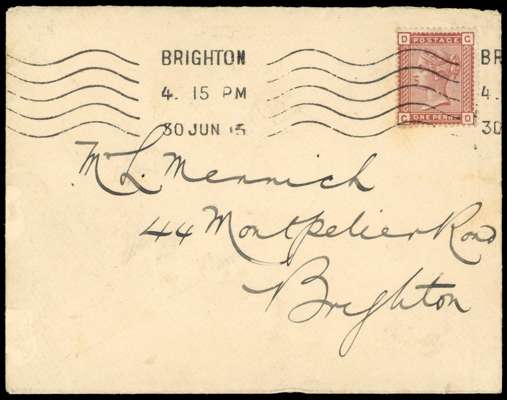 BRIGHTON
4. 15 PM
30 JUN 15
BR
4.
30
D G
POSTAGE
ONE PENNY
G D
Mr L. Mennich
44 Montpelier Road
Brighton